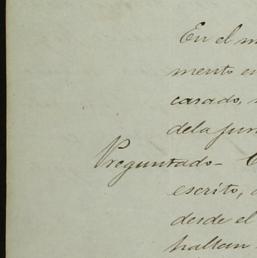 En el m
mento e
casado,
de la fun
Preguntado-
escrito,
desde el
hallan